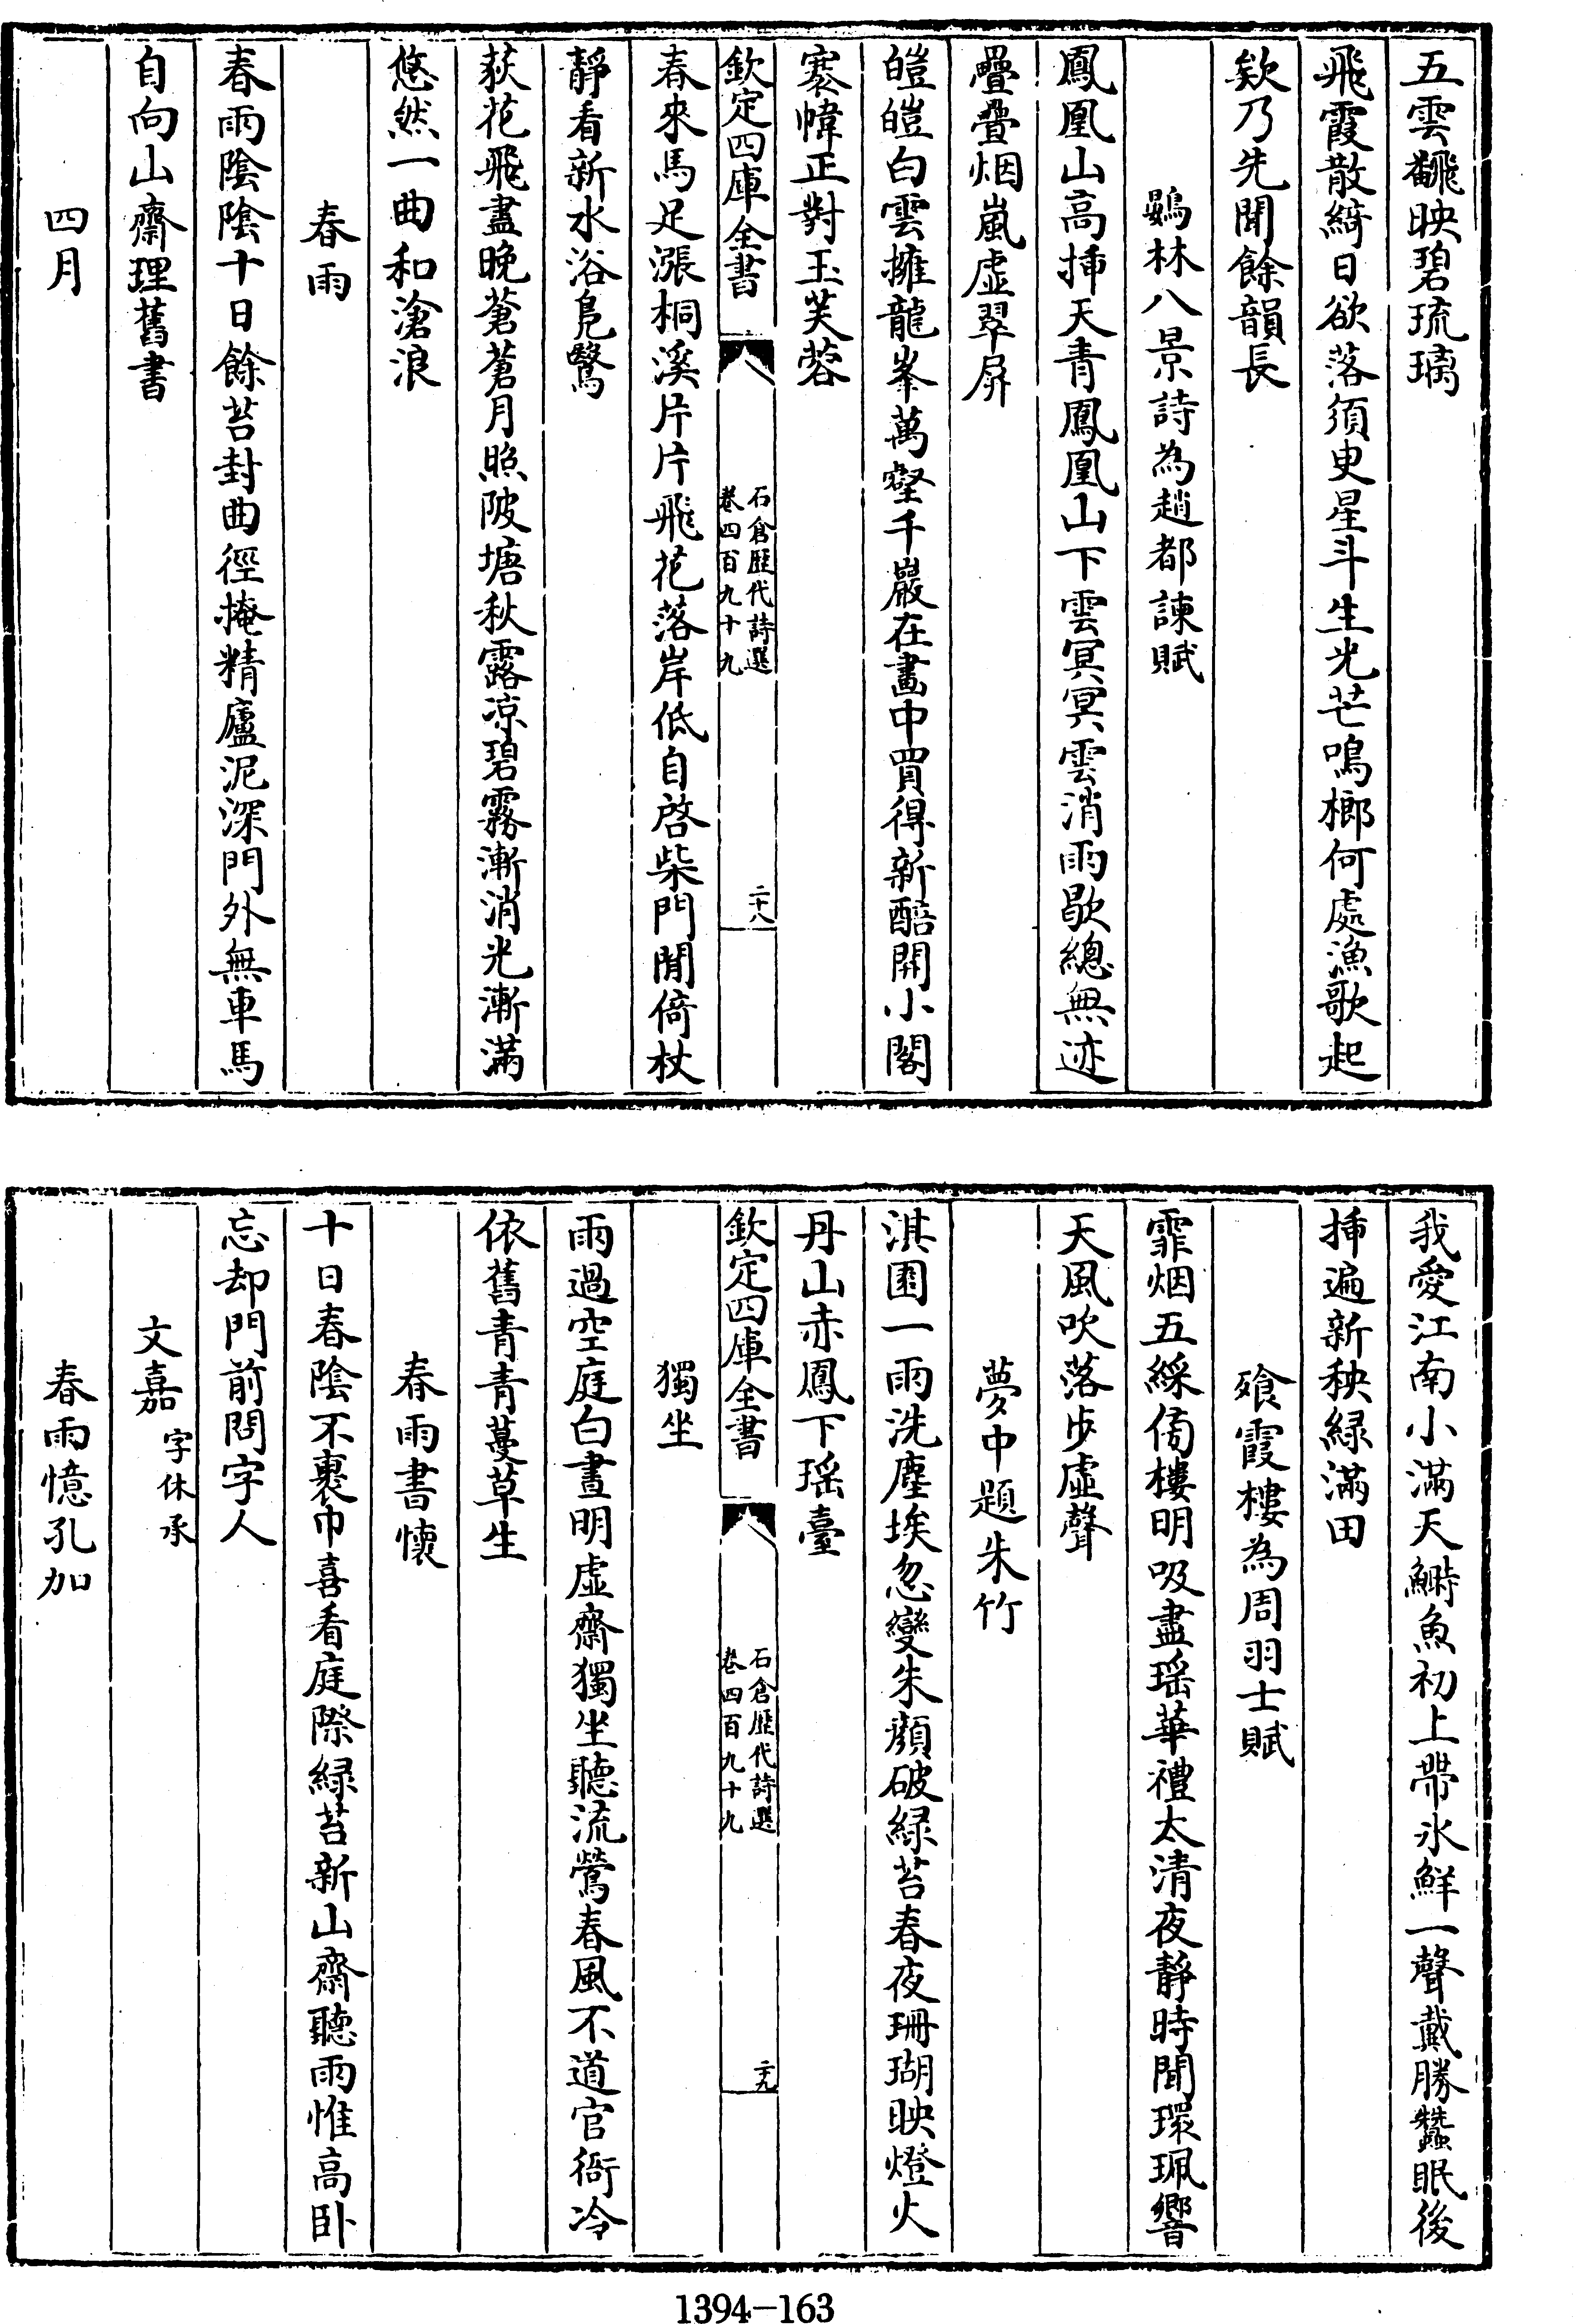 五雲飜映碧琉璃
飛霞散綺日欲落須臾星斗生光芒鳴榔何處漁歌起
欸乃先聞餘韻長
鷃林八景詩為趙都諫賦
鳳凰山高挿天青鳳凰山下雲冥冥雲消雨歇總無迹
疊疊烟嵐虛翠屏
皚皚白雲擁龍峯萬壑千巖在畫中買得新醅開小閣
褰幃正對玉芙蓉
欽定四庫全書
石倉歷代詩選
卷四百九十九
二十八
春來馬足漲桐溪片片飛花落岸低自啓柴門閒倚杖
靜看新水浴鳧鷖
荻花飛盡晚蒼蒼月照陂塘秋露凉碧霧漸消光漸滿
悠然一曲和滄浪
春雨
春雨陰陰十日餘苔封曲徑掩精廬泥深門外無車馬
自向山齋理舊書
四月
我愛江南小滿天鰣魚初上帶氷鮮一聲戴勝蠶眠後
挿遍新秧緑滿田
飡霞樓為周羽士賦
霏烟五綵傍樓明吸盡瑶華禮太清夜靜時聞環珮響
天風吹落步虛聲
夢中題朱竹
淇園一雨洗塵埃忽變朱顔破緑苔春夜珊瑚映燈火
丹山赤鳳下瑶臺
欽定四庫全書
石倉歷代詩選
卷四百九十九
二十九
獨坐
雨過空庭白晝明虛齋獨坐聽流鶯春風不道官衙冷
依舊青青蔓草生
春雨書懷
十日春陰不裹巾喜看庭際緑苔新山齋聽雨惟高卧
忘却門前問字人
文嘉 字休承
春雨憶孔加
1394-163